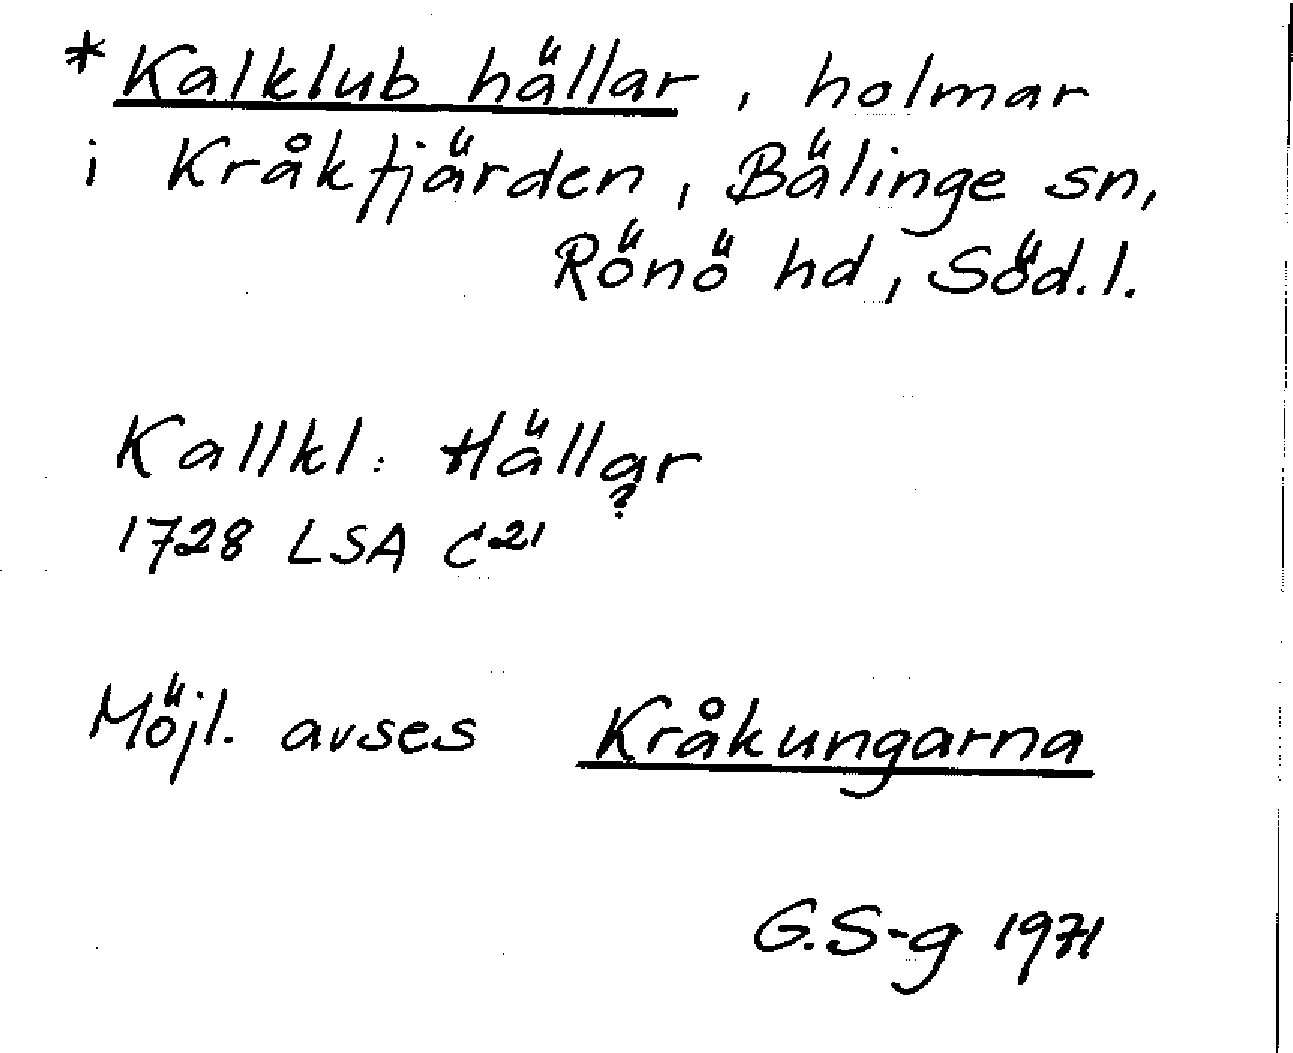 *Kalklub hällar, holmar
i Kråkfjärden, Bälinge sn,
Rönö hd, Söd.l.
Kallkl: Hällar
?
1728 LSA C21
Möjl. avses Kråkungarna
G.S-g 1971